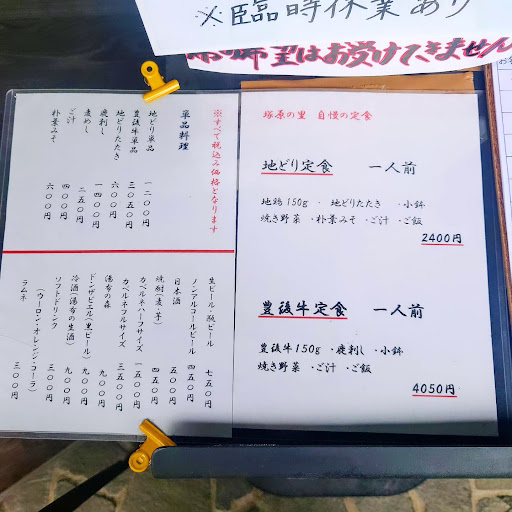 ※臨時休業あり
席の希望はお受けできません
塚原の里 自慢の定食
地どり定食 一人前
地鶏150g ・ 地どりたたき ・小鉢
焼き野菜 ・朴葉みそ ・ご汁 ・ご飯
2400円
豊後牛定食 一人前
豊後牛150g ・鹿刺し ・小鉢
焼き野菜 ・ご汁 ・ご飯
4050円
※すべて税込み価格となります
単品料理
地どり単品 一二〇〇円
豊後牛単品 三〇五〇円
地どりたたき 六〇〇円
鹿刺し 一四〇〇円
麦めし 二五〇円
ご汁 四〇〇円
朴葉みそ 六〇〇円
生ビール・瓶ビール 七五〇円
ノンアルコールビール 四五〇円
日本酒 五五〇円
焼酎(麦・芋) 四五〇円
カベルネハーフサイズ 一五〇〇円
カベルネフルサイズ 三五〇〇円
湯布の森 九〇〇円
ドン・ザビエル(黒ビール) 九〇〇円
冷酒(湯布の生酒) 九〇〇円
ソフトドリンク
(ウーロン・オレンジ・コーラ) 三〇〇円
ラムネ 三〇〇円